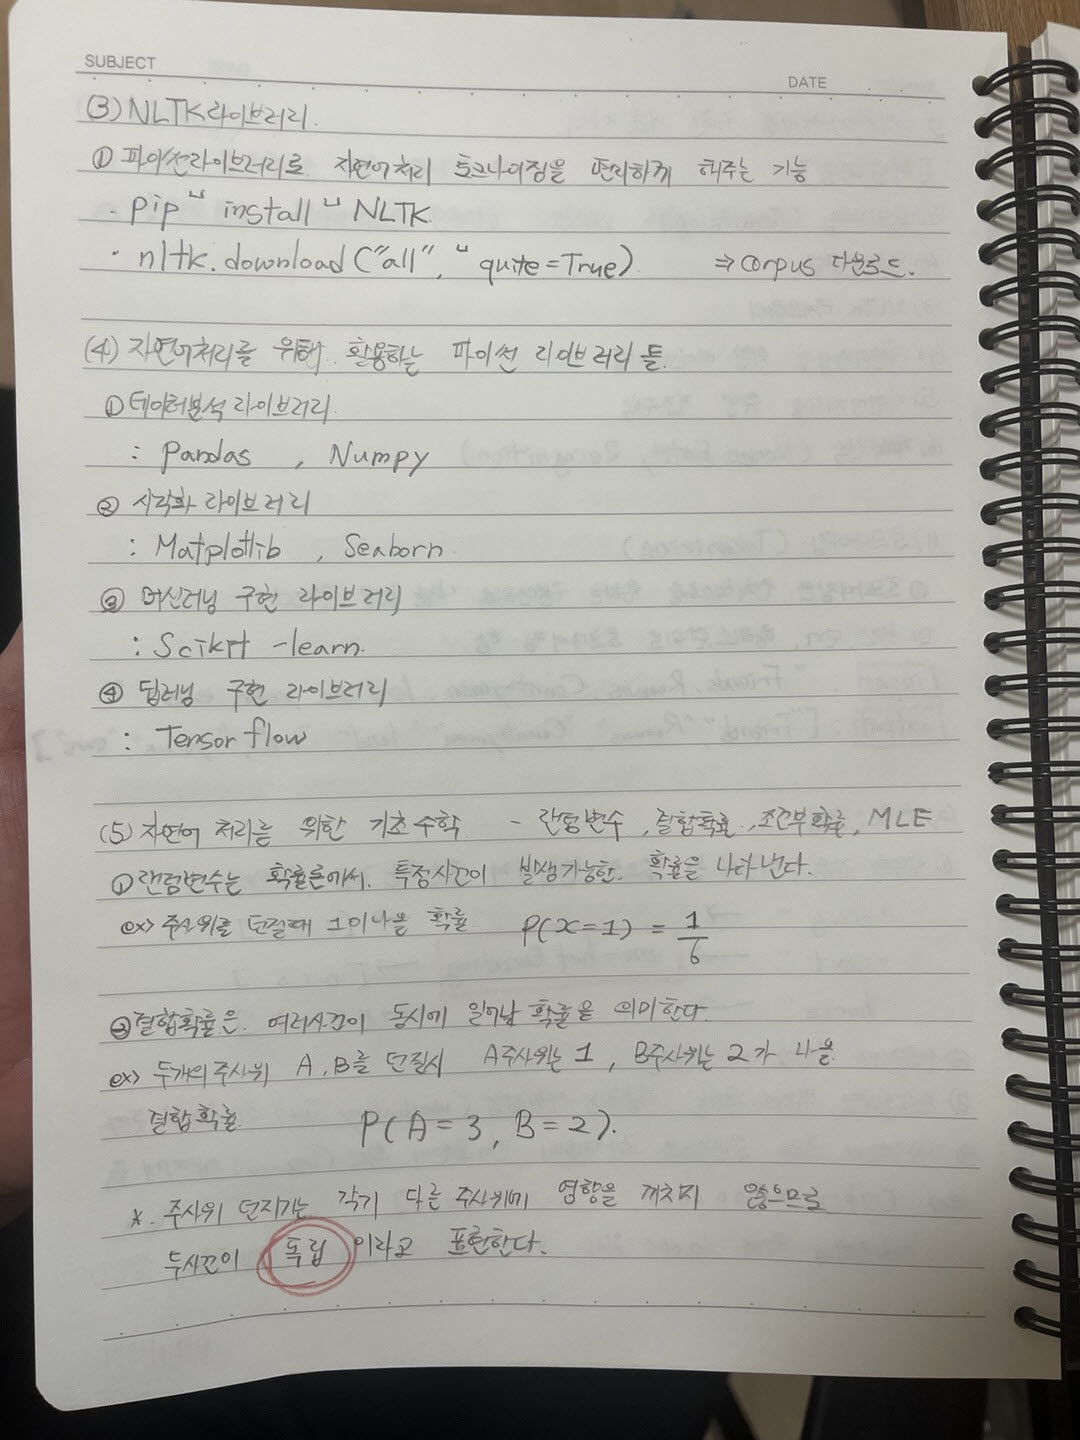 SUBJECT
DATE
(3) NLTK라이브러리.
① 파이썬라이브러리로 자연어처리 토크나이징을 편리하게 해주는 기능
· pip ␣ install ␣ NLTK
· nltk.download("all", ␣ quite=True) ⇒ corpus 다운로드.
(4) 자연어처리를 위해 활용하는 파이썬 라이브러리 들.
① 데이터분석 라이브러리
: Pandas , Numpy
② 시각화 라이브러리
: Matplotlib , Seaborn
③ 머신러닝 구현 라이브러리
: Scikit -learn.
④ 딥러닝 구현 라이브러리
: Tensor flow
(5) 자연어 처리를 위한 기초수학 - 랜덤변수, 결합확률, 조건부확률, MLE
① 랜덤변수는 확률론에서. 특정사건이 발생가능한. 확률을 나타낸다.
ex> 주사위를 던질때 1이나올 확률 P(x=1) = 1/6
② 결합확률은. 여러사건이 동시에 일어날 확률을 의미한다.
ex> 두개의주사위 A,B를 던질시 A주사위는 1, B주사위는 2가 나올
결합확률 P(A=3, B=2).
*. 주사위 던지기는 각기 다른 주사위에 영향을 끼치지 않으므로
두사건이 독립 이라고 표현한다.